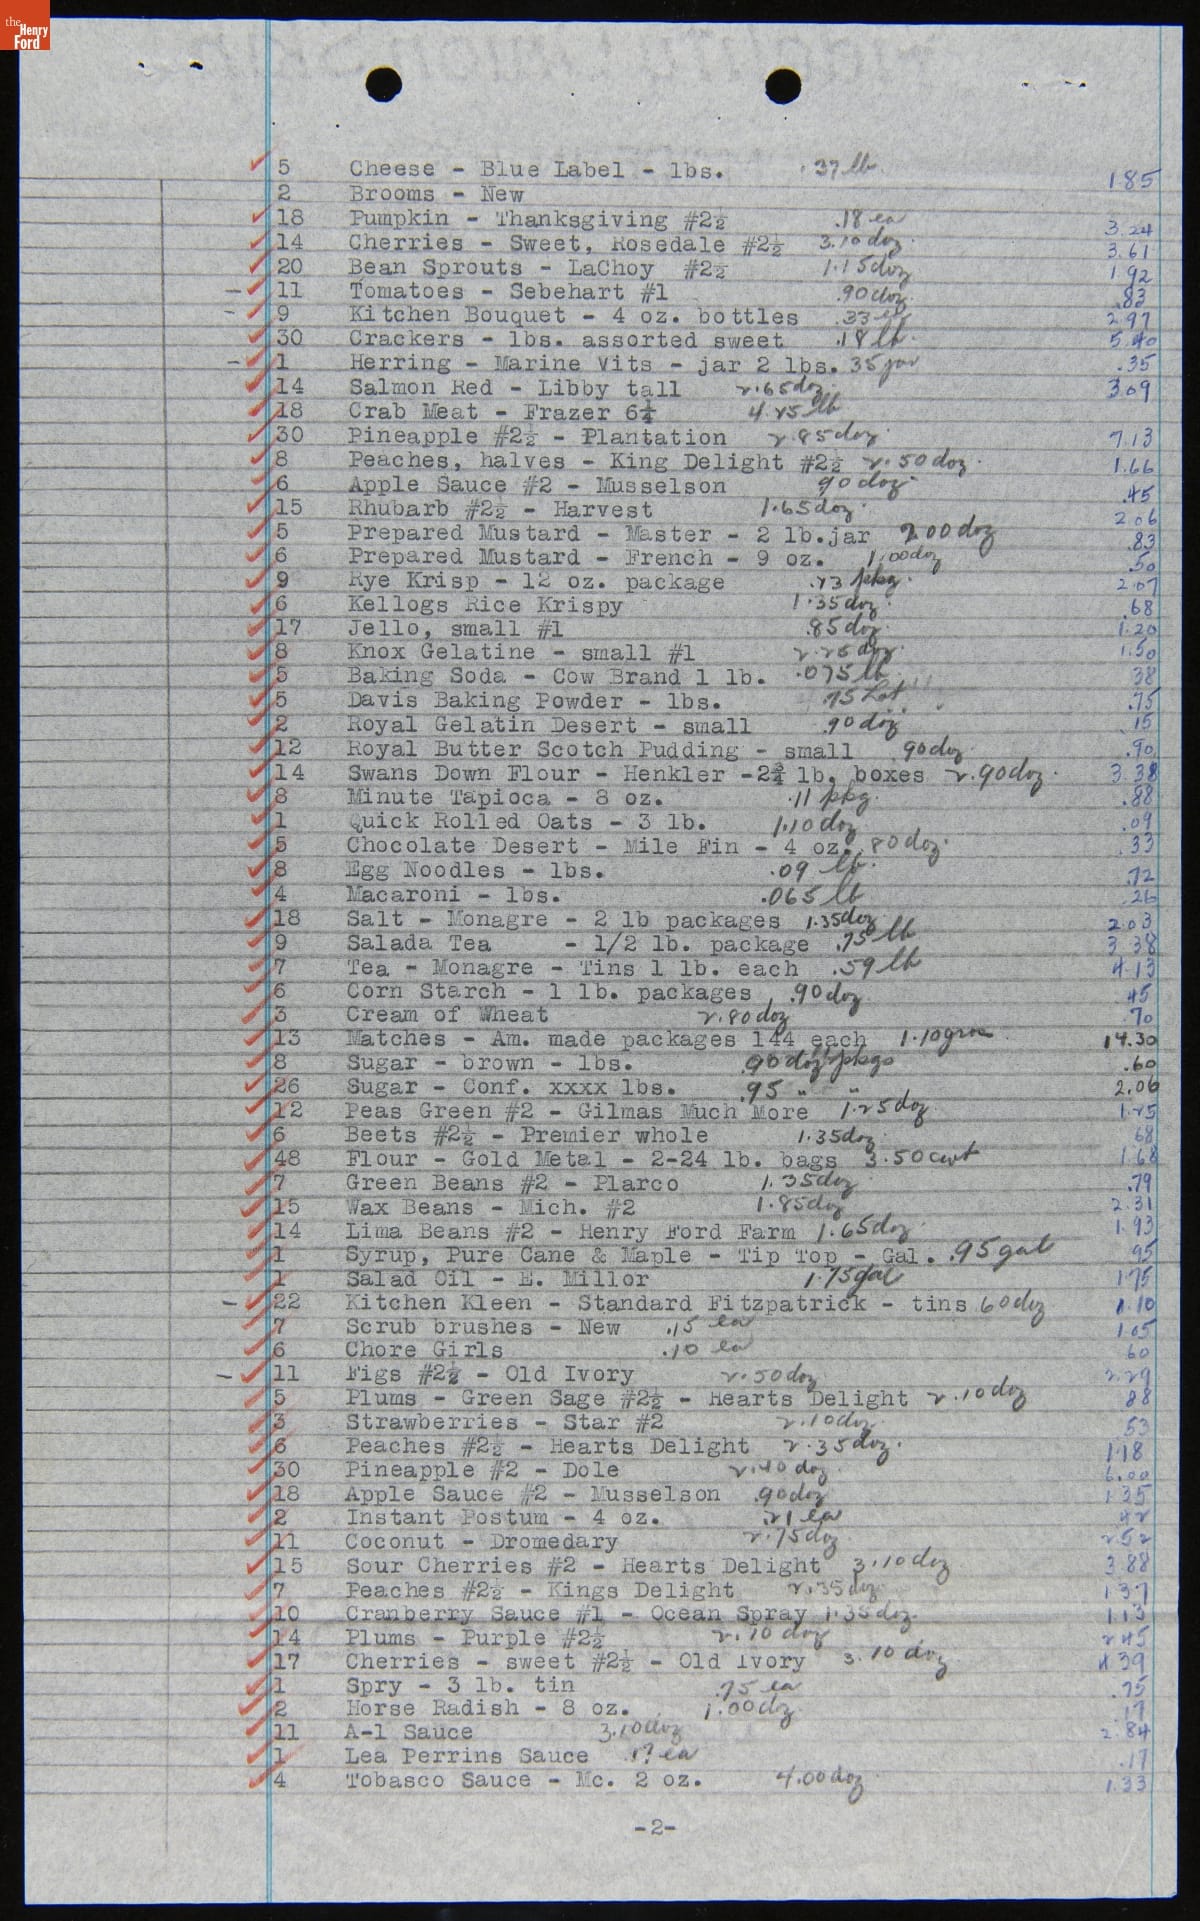 the Henry Ford
5 Cheese - Blue Label - lbs. .37 lb 1.85
2 Brooms - New
18 Pumpkin - Thanksgiving #2½ .18 ea 3.24
14 Cherries - Sweet, Rosedale #2½ 3.10 doz. 3.61
20 Bean Sprouts - LaChoy #2½ 1.15 doz 1.92
11 Tomatoes - Sebehart #1 .90 doz. .83
9 Kitchen Bouquet - 4 oz. bottles .33 ea 2.97
30 Crackers - lbs. assorted sweet .18 lb. 5.40
1 Herring - Marine Vits - jar 2 lbs. 35 jar .35
14 Salmon Red - Libby tall 2.65 doz. 3.09
18 Crab Meat - Frazer 6¼ 4.25 lb
30 Pineapple #2½ - Plantation 2.85 doz. 7.13
8 Peaches, halves - King Delight #2½ 2.50 doz. 1.66
6 Apple Sauce #2 - Musselson 90 doz. .45
15 Rhubarb #2½ - Harvest 1.65 doz. 2.06
5 Prepared Mustard - Master - 2 lb.jar 2.00 doz .83
6 Prepared Mustard - French - 9 oz. 1.00 doz .50
9 Rye Krisp - 12 oz. package .23 pkg. 2.07
6 Kellogs Rice Krispy 1.35 doz. .68
17 Jello, small #1 .85 doz. 1.20
8 Knox Gelatine - small #1 2.25 doz. 1.50
5 Baking Soda - Cow Brand 1 lb. .075 lb. 38
5 Davis Baking Powder - lbs. .75
2 Royal Gelatin Desert - small .90 doz. 15
12 Royal Butter Scotch Pudding - small .90 doz. .90
14 Swans Down Flour - Henkler -2¾ lb, boxes 2.90 doz. 3.38
8 Minute Tapioca - 8 oz. .11 pkg. .88
1 Quick Rolled Oats - 3 lb. 1.10 doz .09
5 Chocolate Desert - Mile Fin - 4 oz. .80 doz. .33
8 Egg Noodles - lbs. .09 lb. .72
4 Macaroni - lbs. .065 lb .26
18 Salt - Monagre - 2 lb packages 1.35 doz 2.03
9 Salada Tea - 1/2 lb. package .75 lb 3.38
7 Tea - Monagre - Tins 1 lb. each .59 lb 4.13
6 Corn Starch - 1 lb. packages .90 doz 45
3 Cream of Wheat 2.80 doz .70
13 Matches - Am. made packages 144 each 1.10 gross 14.30
8 Sugar - brown - lbs. .90 doz pkgs .60
26 Sugar - Conf. xxxx lbs. .95 " " 2.06
12 Peas Green #2 - Gilmas Much More 1.25 doz 1.25
6 Beets #2½ - Premier whole 1.35 doz. 68
48 Flour - Gold Metal - 2-24 lb. bags 3.50 cwt 1.68
7 Green Beans #2 - Plarco 1.35 doz .79
15 Wax Beans - Mich. #2 1.85 doz 2.31
14 Lima Beans #2 - Henry Ford Farm 1.65 doz 1.93
1 Syrup, Pure Cane & Maple - Tip Top - Gal. .95 gal 95
1 Salad Oil - E. Millor 1.75 gal 1.75
22 Kitchen Kleen - Standard Fitzpatrick - tins 60 doz 1.10
7 Scrub brushes - New .15 ea 1.05
6 Chore Girls .10 ea 60
11 Figs #2½ - Old Ivory 2.50 doz 2.29
5 Plums - Green Sage #2½ - Hearts Delight 2.10 doz 88
3 Strawberries - Star #2 2.10 doz. .53
6 Peaches #2½ - Hearts Delight 2.35 doz. 1.18
30 Pineapple #2 - Dole 2.40 doz 6.00
18 Apple Sauce #2 - Musselson .90 doz 1.35
2 Instant Postum - 4 oz. .21 ea 42
11 Coconut - Dromedary 2.75 doz 2.52
15 Sour Cherries #2 - Hearts Delight 3.10 doz 3.88
7 Peaches #2½ - Kings Delight 2.35 doz 1.37
10 Cranberry Sauce #1 - Ocean Spray 1.35 doz. 1.13
14 Plums - Purple #2½ 2.10 doz 2.45
17 Cherries - sweet #2½ - Old Ivory 3.10 doz 4.39
1 Spry - 3 lb. tin .75 ea .75
2 Horse Radish - 8 oz. 1.00 dz. .17
11 A-1 Sauce 3.10 doz 2.84
1 Lea Perrins Sauce .17 ea .17
4 Tobasco Sauce - Mc. 2 oz. 4.00 doz 1.33
-2-